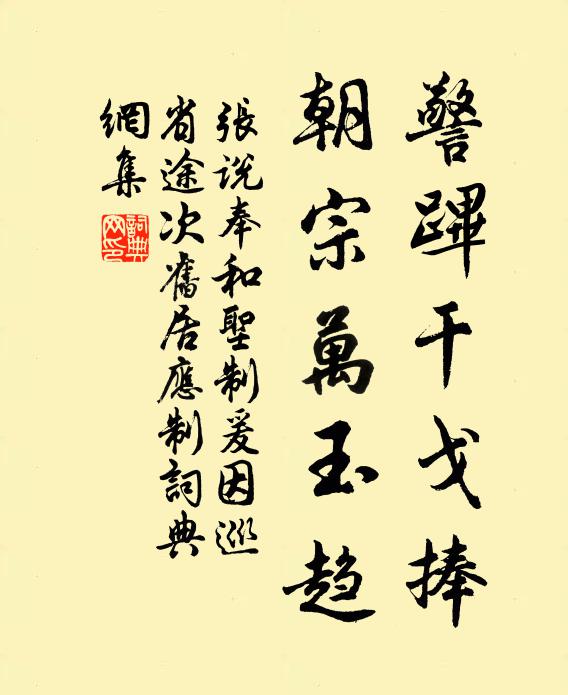 警蹕干戈捧
朝宗萬玉趨
張說奉和聖制爰因巡
省途次舊居應制詞典
網集
詞典网印